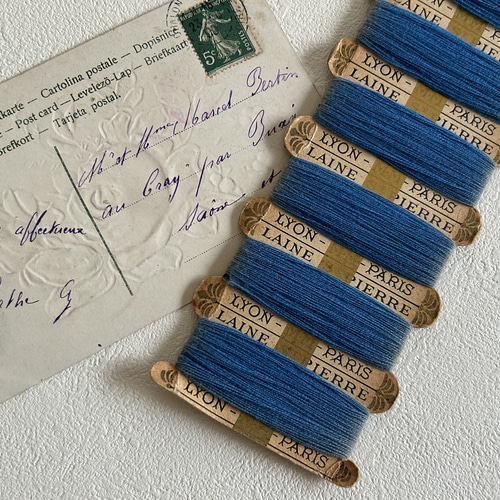 karte — Cartolina postale — Dopisnice
— Post card — Levelező-Lap — Briefkaart
refkort — Tarjeta postal.
5c
Mr et Mme Marcel Bertin
au Gray par
Saône et
affectueux
LYON- PARIS
LAINE PIERRE
LYON- PARIS
LAINE PIERRE
LYON- PARIS
LAINE PIERRE
LYON- PARIS
LAINE PIERRE
LYON- PARIS